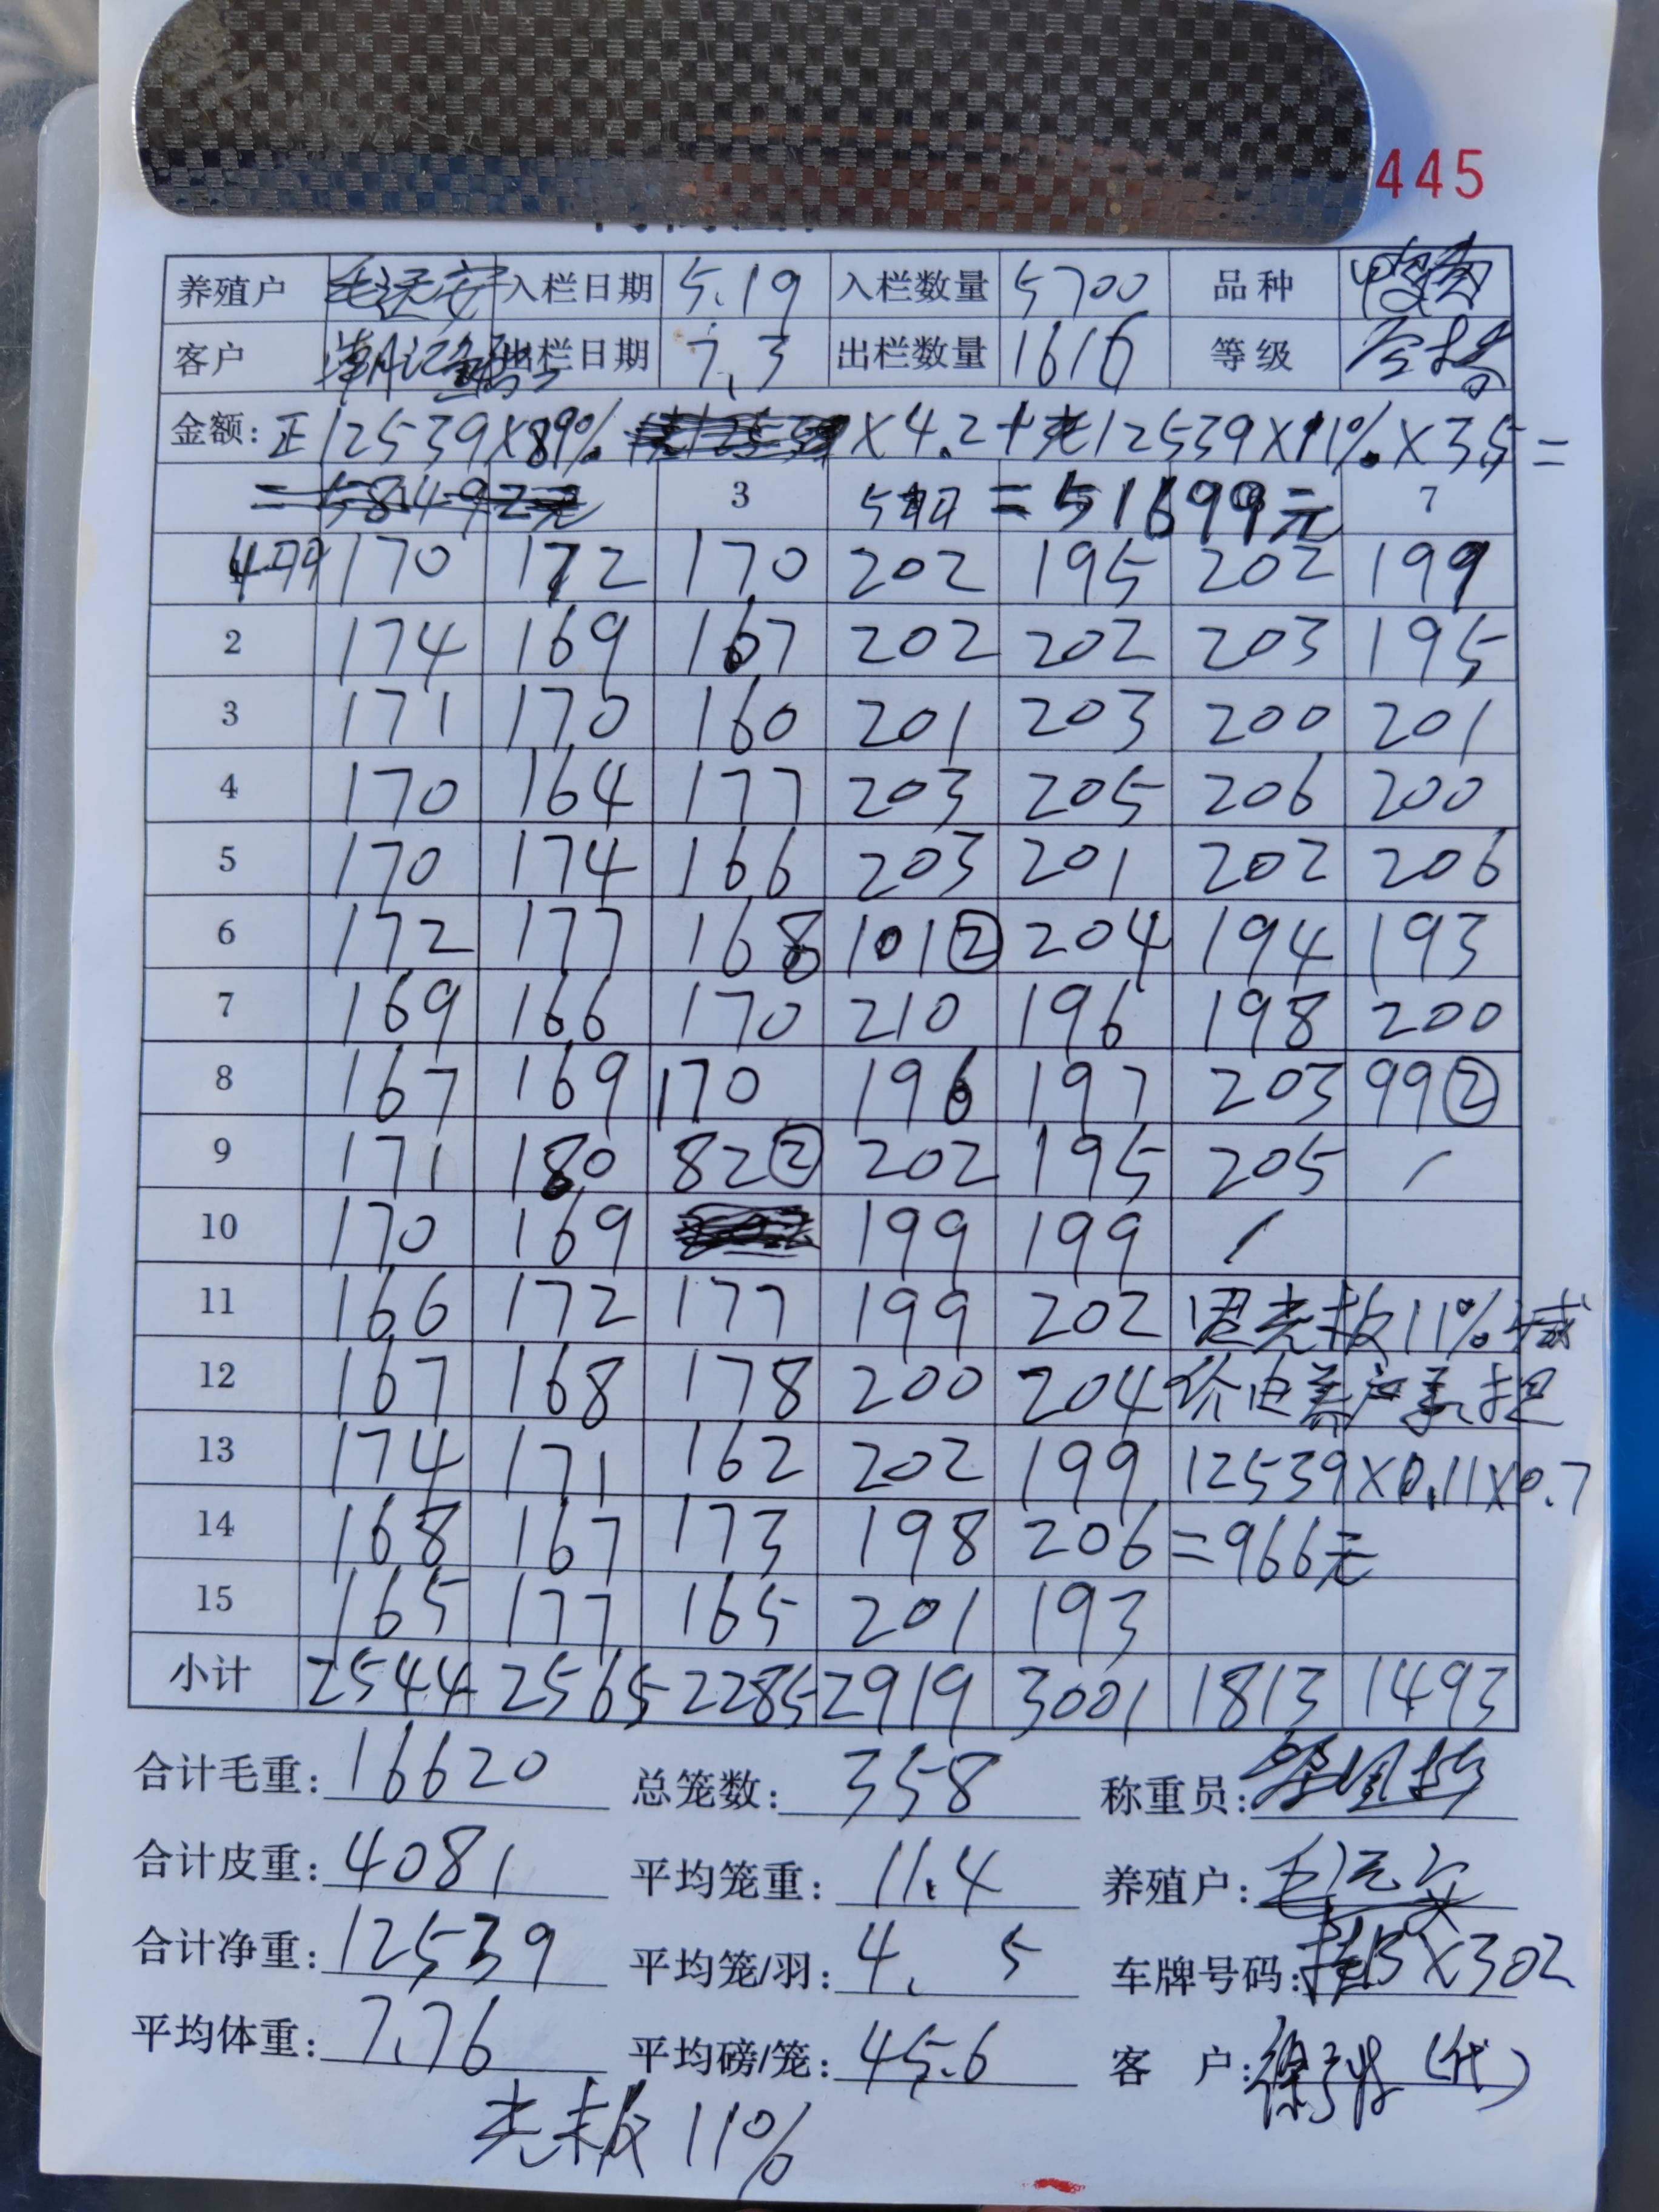 445
养殖户 毛远安 入栏日期 5.19 入栏数量 5700 品种
客户 出栏日期 7.3 出栏数量 1616 等级 合格
金额: 正12539×89% ×4.2+光12539×11%×3.5=
=58492元 3 5羽 =51699元 7
4羽 170 172 170 202 195 202 199
2 174 169 167 202 202 203 195
3 171 170 160 201 203 200 201
4 170 164 177 203 205 206 200
5 170 174 166 203 201 202 206
6 172 177 168 101② 204 194 193
7 169 166 170 210 196 198 200
8 167 169 170 196 197 203 99②
9 171 180 82② 202 195 205 /
10 170 169 199 199 /
11 166 172 177 199 202 因光板11%减
12 167 168 178 200 204 价由养户承担
13 174 171 162 202 199 12539×0.11×0.7
14 168 167 173 198 206 =966元
15 165 177 165 201 193
小计 2544 2565 2285 2919 3001 1813 1493
合计毛重: 16620 总笼数: 358 称重员:
合计皮重: 4081 平均笼重: 11.4 养殖户: 毛远安
合计净重: 12539 平均笼/羽: 4.5 车牌号码: 桂BX302
平均体重: 7.76 平均磅/笼: 45.6 客 户: (代)
光板 11%